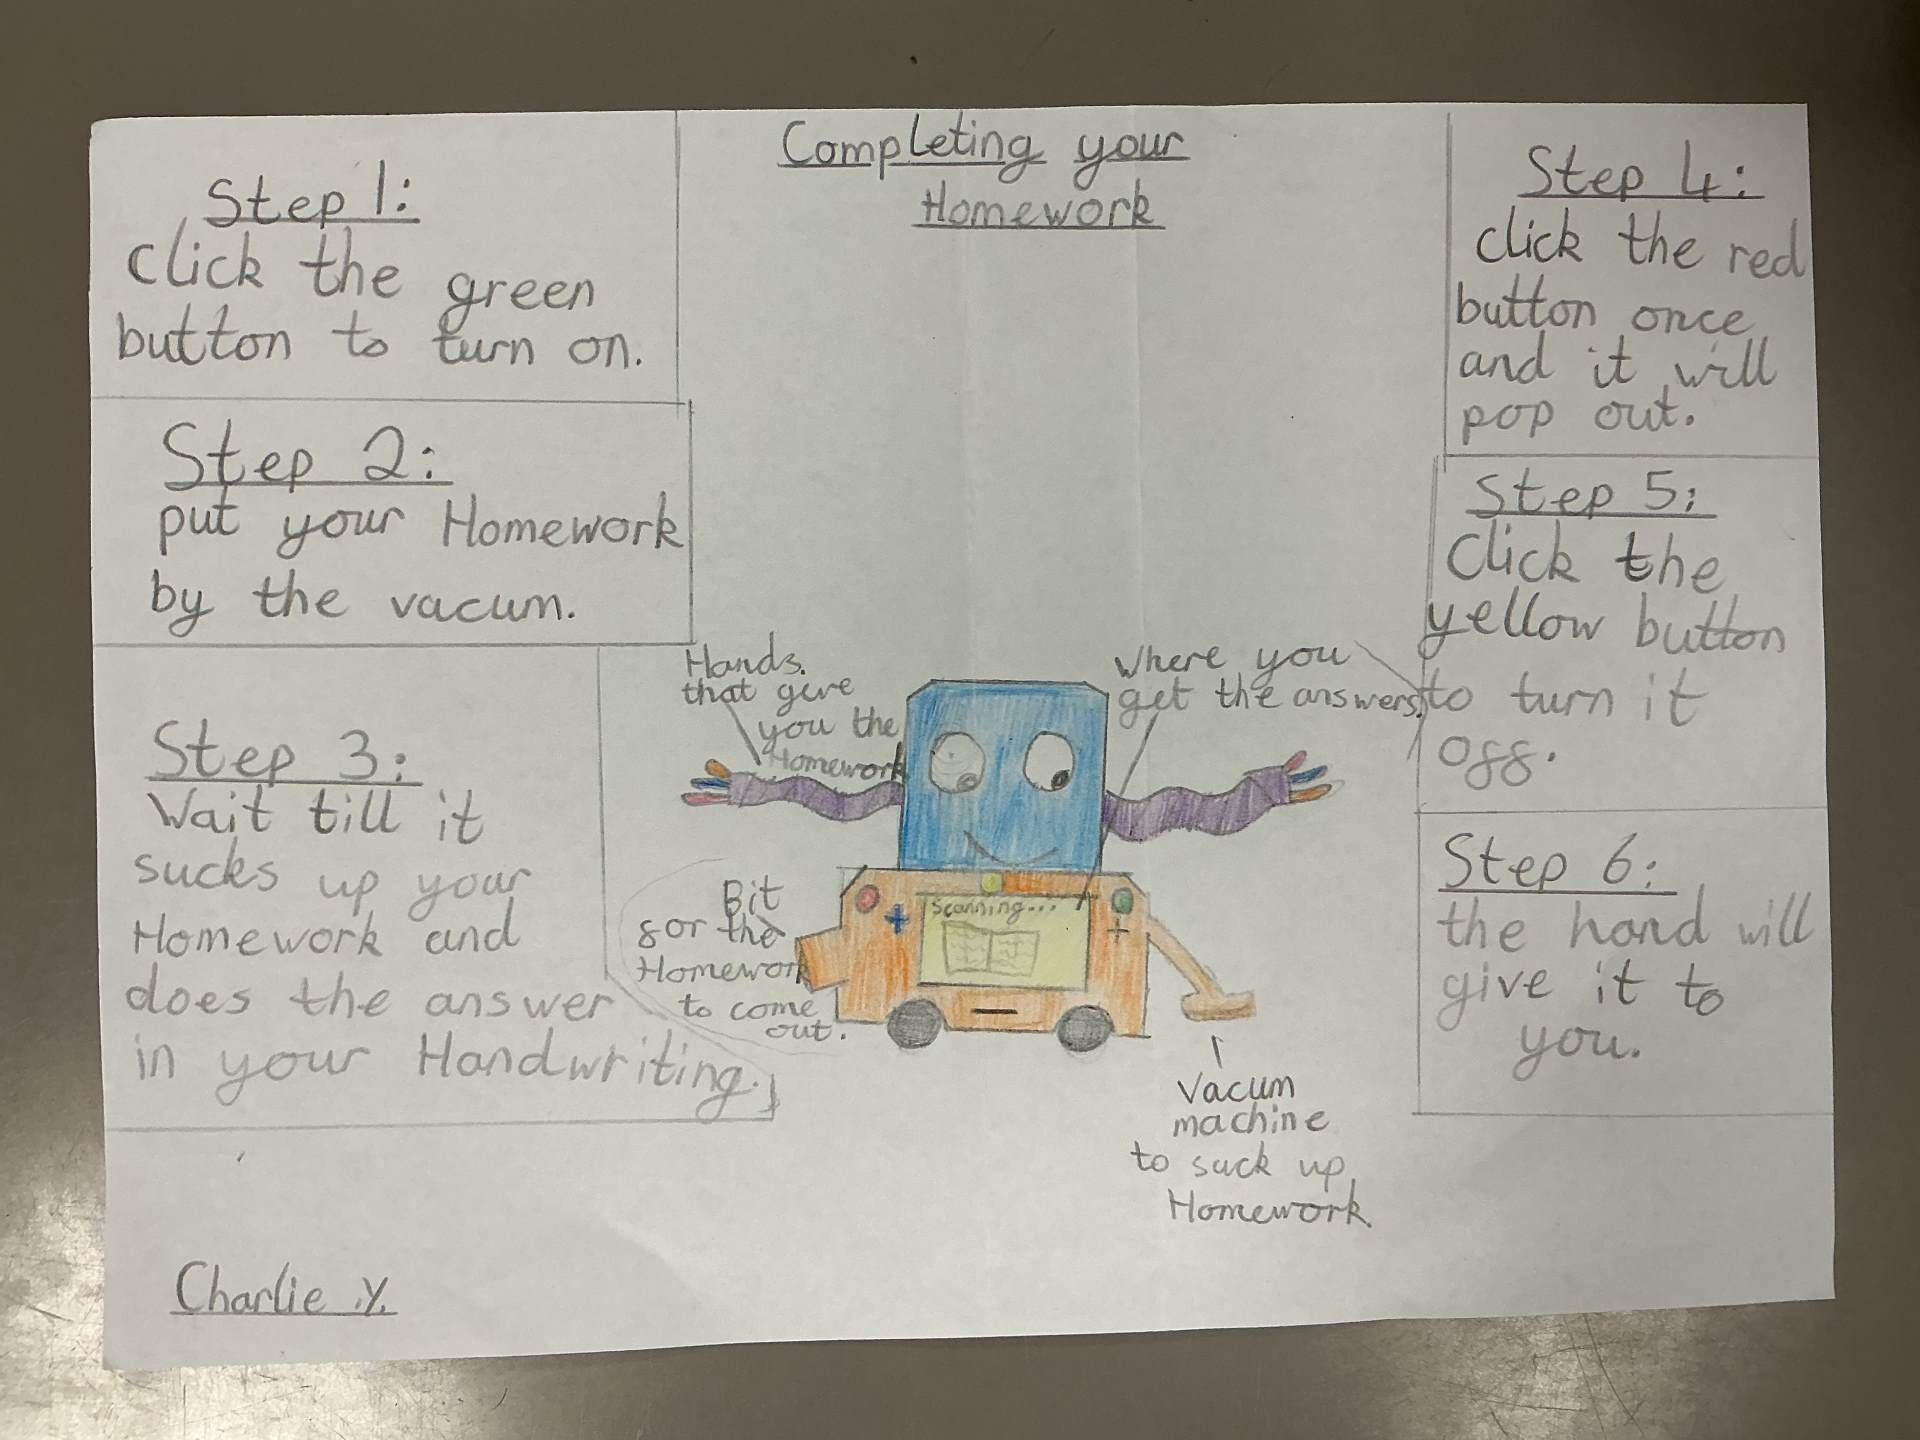 Completing your
Homework
Step 1:
click the green
button to turn on.
Step 2:
put your Homework
by the vacum.
Step 3:
Wait till it
sucks up your
Homework and
does the answer
in your Handwriting.
Hands.
that give
you the
Homework
Where you
get the answers.
Bit
for the
Homework
to come
out.
Scanning...
Vacum
machine
to suck up
Homework.
Step 4:
click the red
button once
and it will
pop out.
Step 5:
Click the
yellow button
to turn it
off.
Step 6:
the hand will
give it to
you.
Charlie .Y.